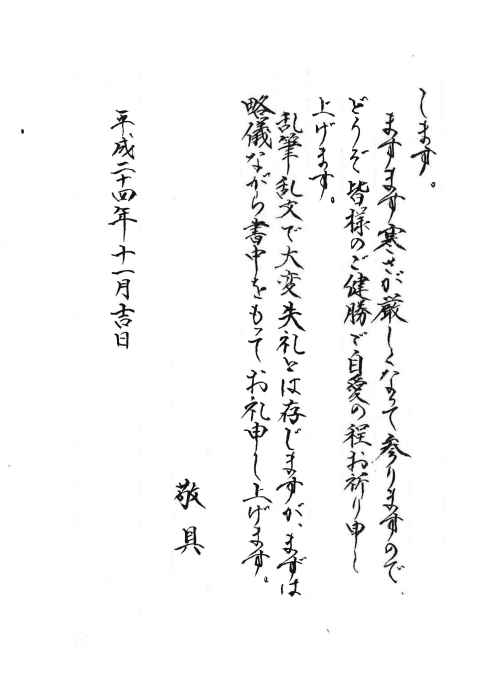 します。
ますます寒さが厳しくなって参りますので
どうぞ皆様のご健勝ご自愛の程お祈り申し
上げます。
乱筆乱文で大変失礼とは存じますが、まずは
略儀ながら書中をもってお礼申し上げます。
敬具
平成二十四年十一月吉日